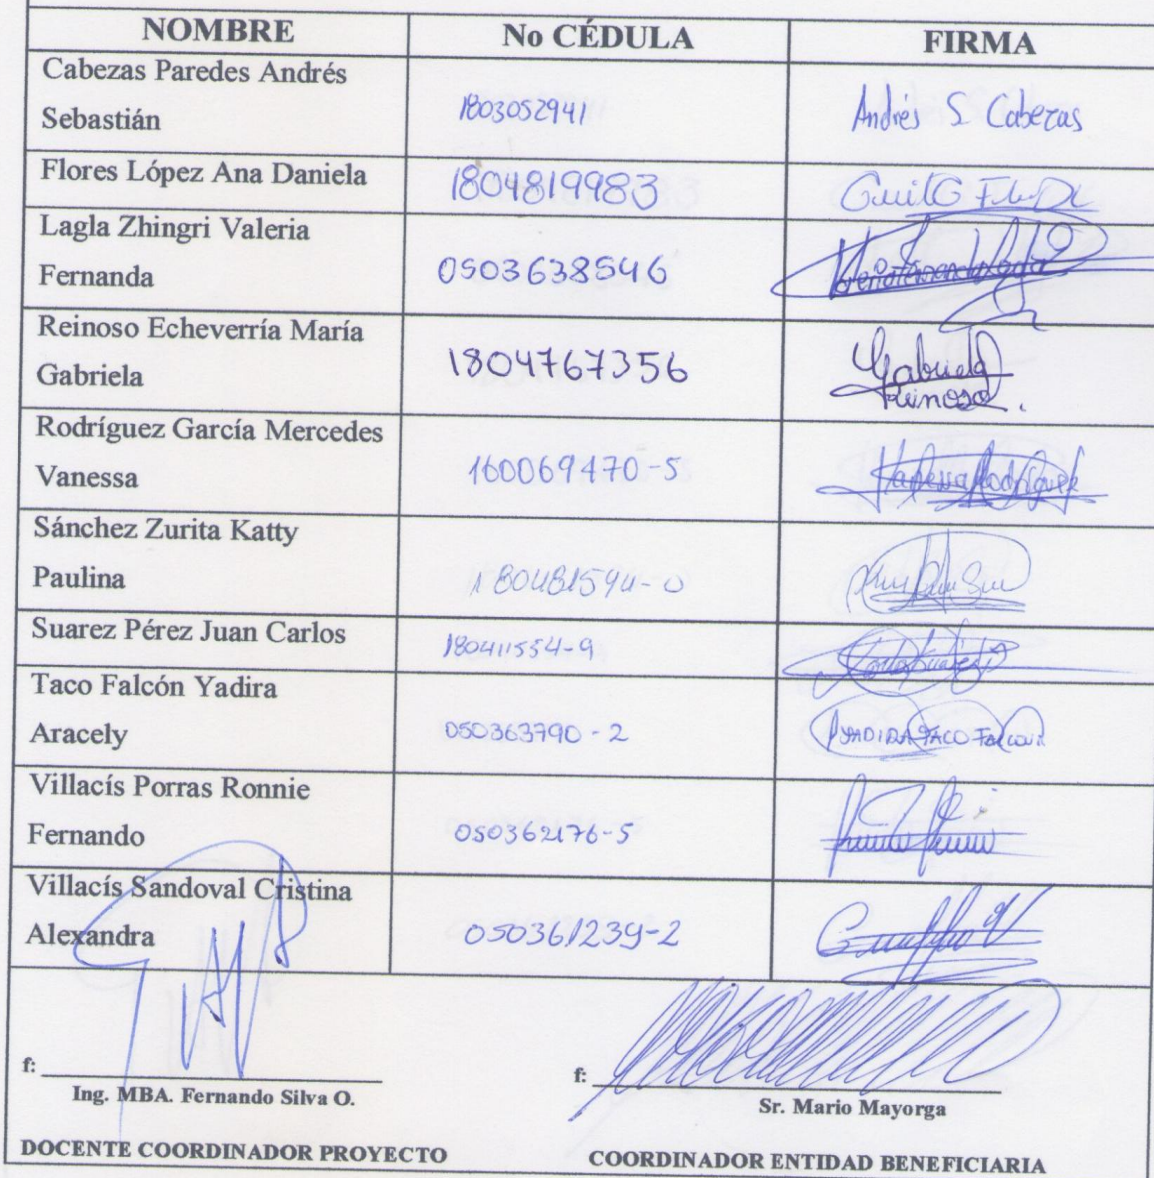 NOMBRE No CÉDULA FIRMA
Cabezas Paredes Andrés
Sebastián 1803052941 Andrés S Cabezas
Flores López Ana Daniela 1804819983
Lagla Zhingri Valeria
Fernanda 0503638546
Reinoso Echeverría María
Gabriela 1804767356 Gabriela
Reinoso.
Rodríguez García Mercedes
Vanessa 160069470-5 Vanessa Rodríguez
Sánchez Zurita Katty
Paulina 180481594-0
Suarez Pérez Juan Carlos 180411554-9
Taco Falcón Yadira
Aracely 050363790-2 YADIRA TACO FALCON
Villacís Porras Ronnie
Fernando 050362176-5
Villacís Sandoval Cristina
Alexandra 050361239-2
f: f:
Ing. MBA. Fernando Silva O. Sr. Mario Mayorga
DOCENTE COORDINADOR PROYECTO COORDINADOR ENTIDAD BENEFICIARIA